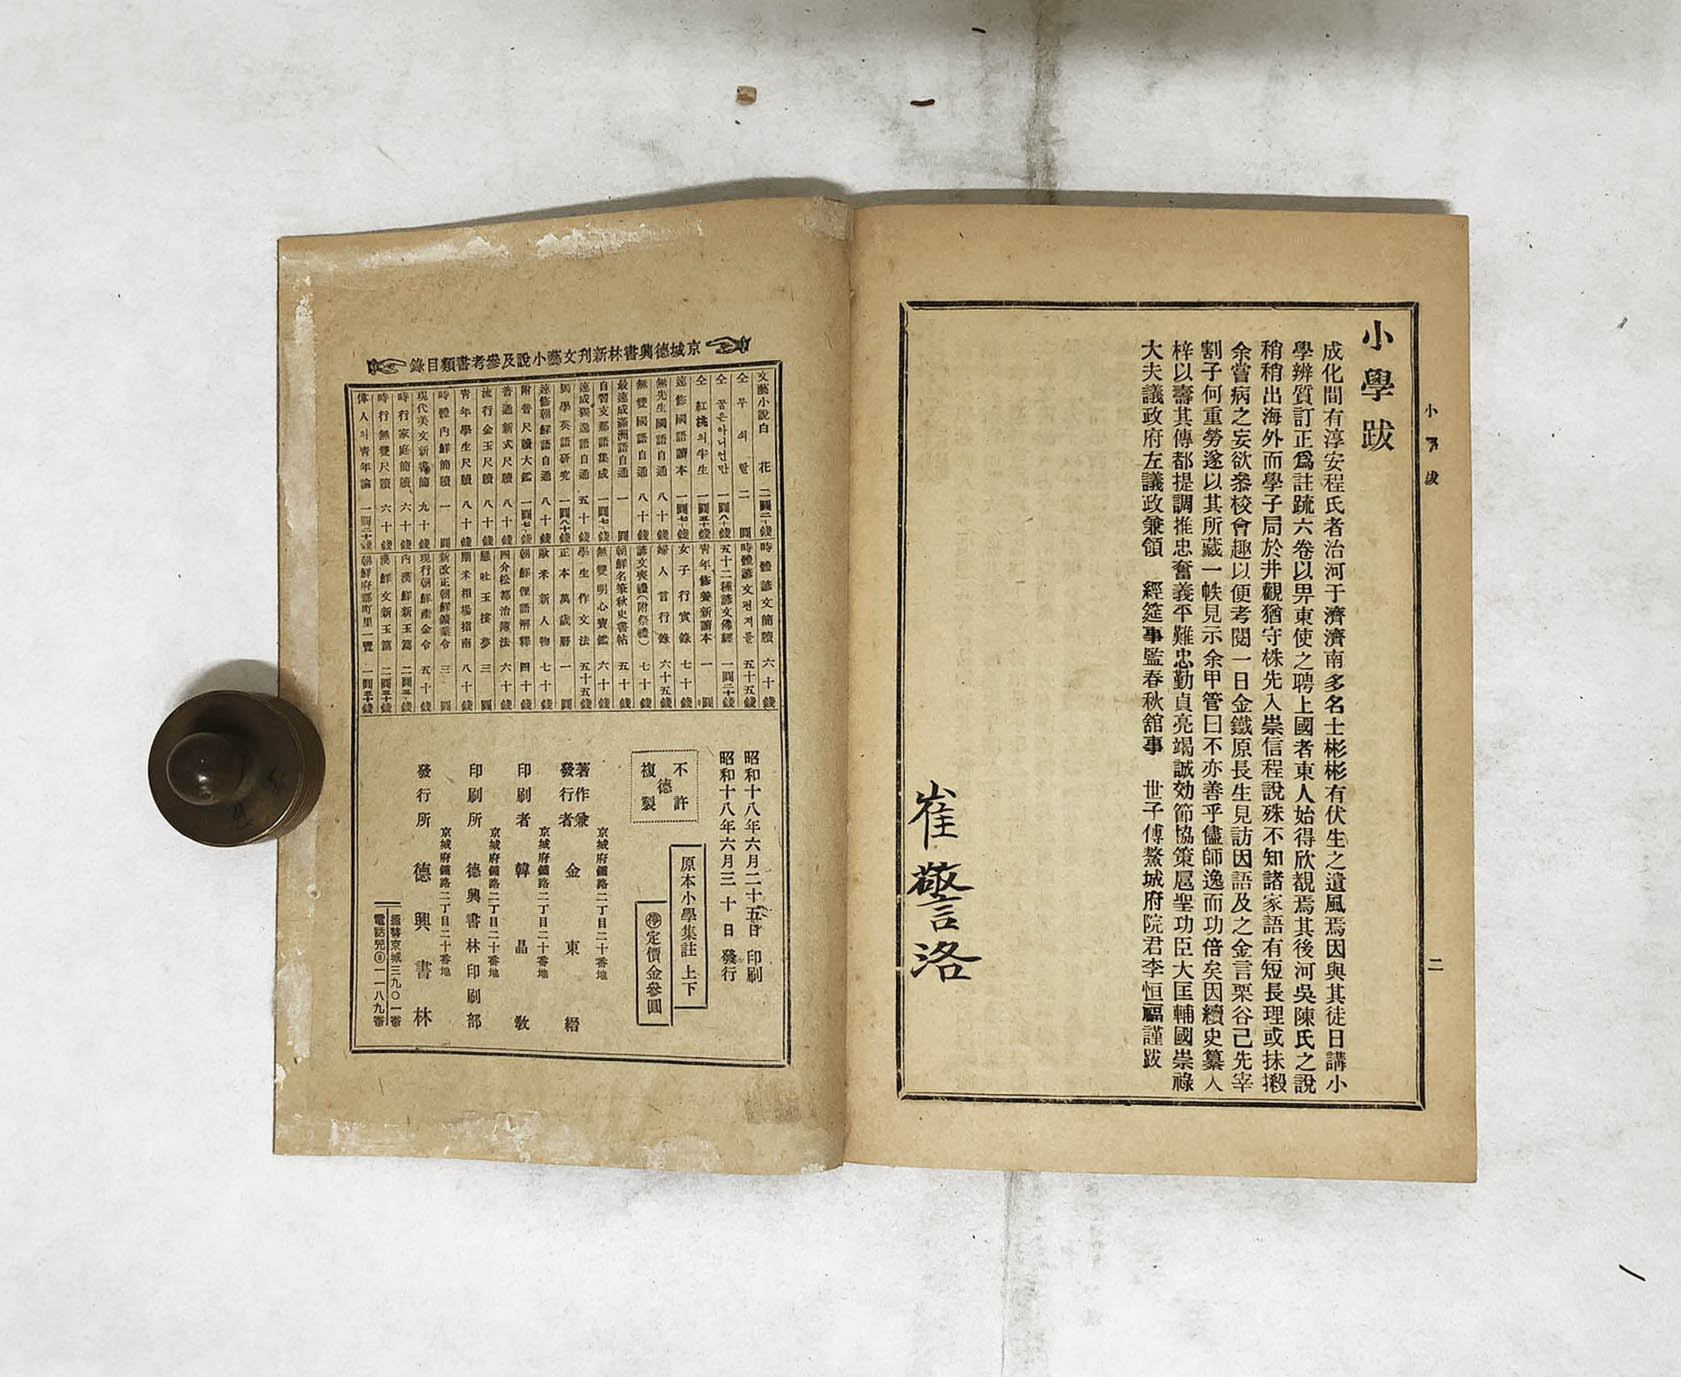 小學跋
成化間有淳安程氏者治河于濟濟南多名士彬彬有伏生之遺風焉因與其徒日講小
學辨質訂正爲註疏六卷以畀東使之聘上國者東人始得欣覩焉其後河吳陳氏之說
稍稍出海外而學子局於井觀猶守株先入崇信程說殊不知諸家語有短長理或抹摋
余嘗病之妄欲叅校會趣以便考閱一日金鐵原長生見訪因語及之金言栗谷己先宰
割子何重勞遂以其所藏一帙見示余甲管曰不亦善乎儘師逸而功倍矣因續史纂入
梓以壽其傳都提調推忠奮義平難忠勤貞亮竭誠効節協策扈聖功臣大匡輔國崇祿
大夫議政府左議政兼領 經筵事監春秋舘事 世子傅鰲城府院君李恒福謹跋
二
崔警洛
京城德興書林新刊文藝小說及參考書類目錄
文藝小說白花 二圓二十錢
仝 무쇠탈 二圓
仝 꿈은아니언만 一圓八十錢
仝 紅桃의半生 一圓五十錢
速修國語讀本 一圓七十錢
無先生國語自通 八十錢
無雙國語自通 八十錢
最速成滿洲語自通 一圓
自習支那語集成 一圓七十錢
速成獨逸語自通 五十錢
獨學英語硏究 一圓八十錢
速修朝鮮語自通 八十錢
附音尺牘大鑑 一圓七十錢
普通新式尺牘 八十錢
流行金玉尺牘 八十錢
靑年學生尺牘 八十錢
時體內鮮簡牘 一圓
現代美文新書簡 九十錢
時行家庭簡牘 六十錢
時行無雙尺牘 六十錢
偉人의靑年論 一圓二十錢
時體諺文簡牘 六十錢
時體諺文편지틀 五十五錢
五十二種諺文佛經 一圓二十錢
靑年修養新讀本 一圓
女子行實錄 七十錢
婦人言行錄 六十五錢
諺文喪禮(附祭禮) 七十錢
朝鮮名筆秋史書帖 五十錢
無雙明心寶鑑 六十錢
學生作文法 五十五錢
正本萬歲曆 一圓
歐米新人物 七十錢
朝鮮俚語解釋 四十錢
四介松都治簿法 六十錢
懸吐玉樓夢 三圓
期米相場指南 八十錢
新改正朝鮮鑛業令 三圓
現行朝鮮產金令 五十錢
內漢鮮新玉篇 二圓五十錢
漢鮮文新玉篇 二圓五十錢
朝鮮府郡町里一覽 一圓五十錢
昭和十八年六月二十五日 印刷
昭和十八年六月三十日 發行
不許
德
複製
原本小學集註 上下
㊞定價金參圓
京城府鍾路二丁目二十番地
著作兼發行者 金東縉
京城府鍾路二丁目二十番地
印刷者 韓晶敎
京城府鍾路二丁目二十番地
印刷所 德興書林印刷部
京城府鍾路二丁目二十番地
發行所 德興書林
振替京城三九〇一番
電話光③一一八九番